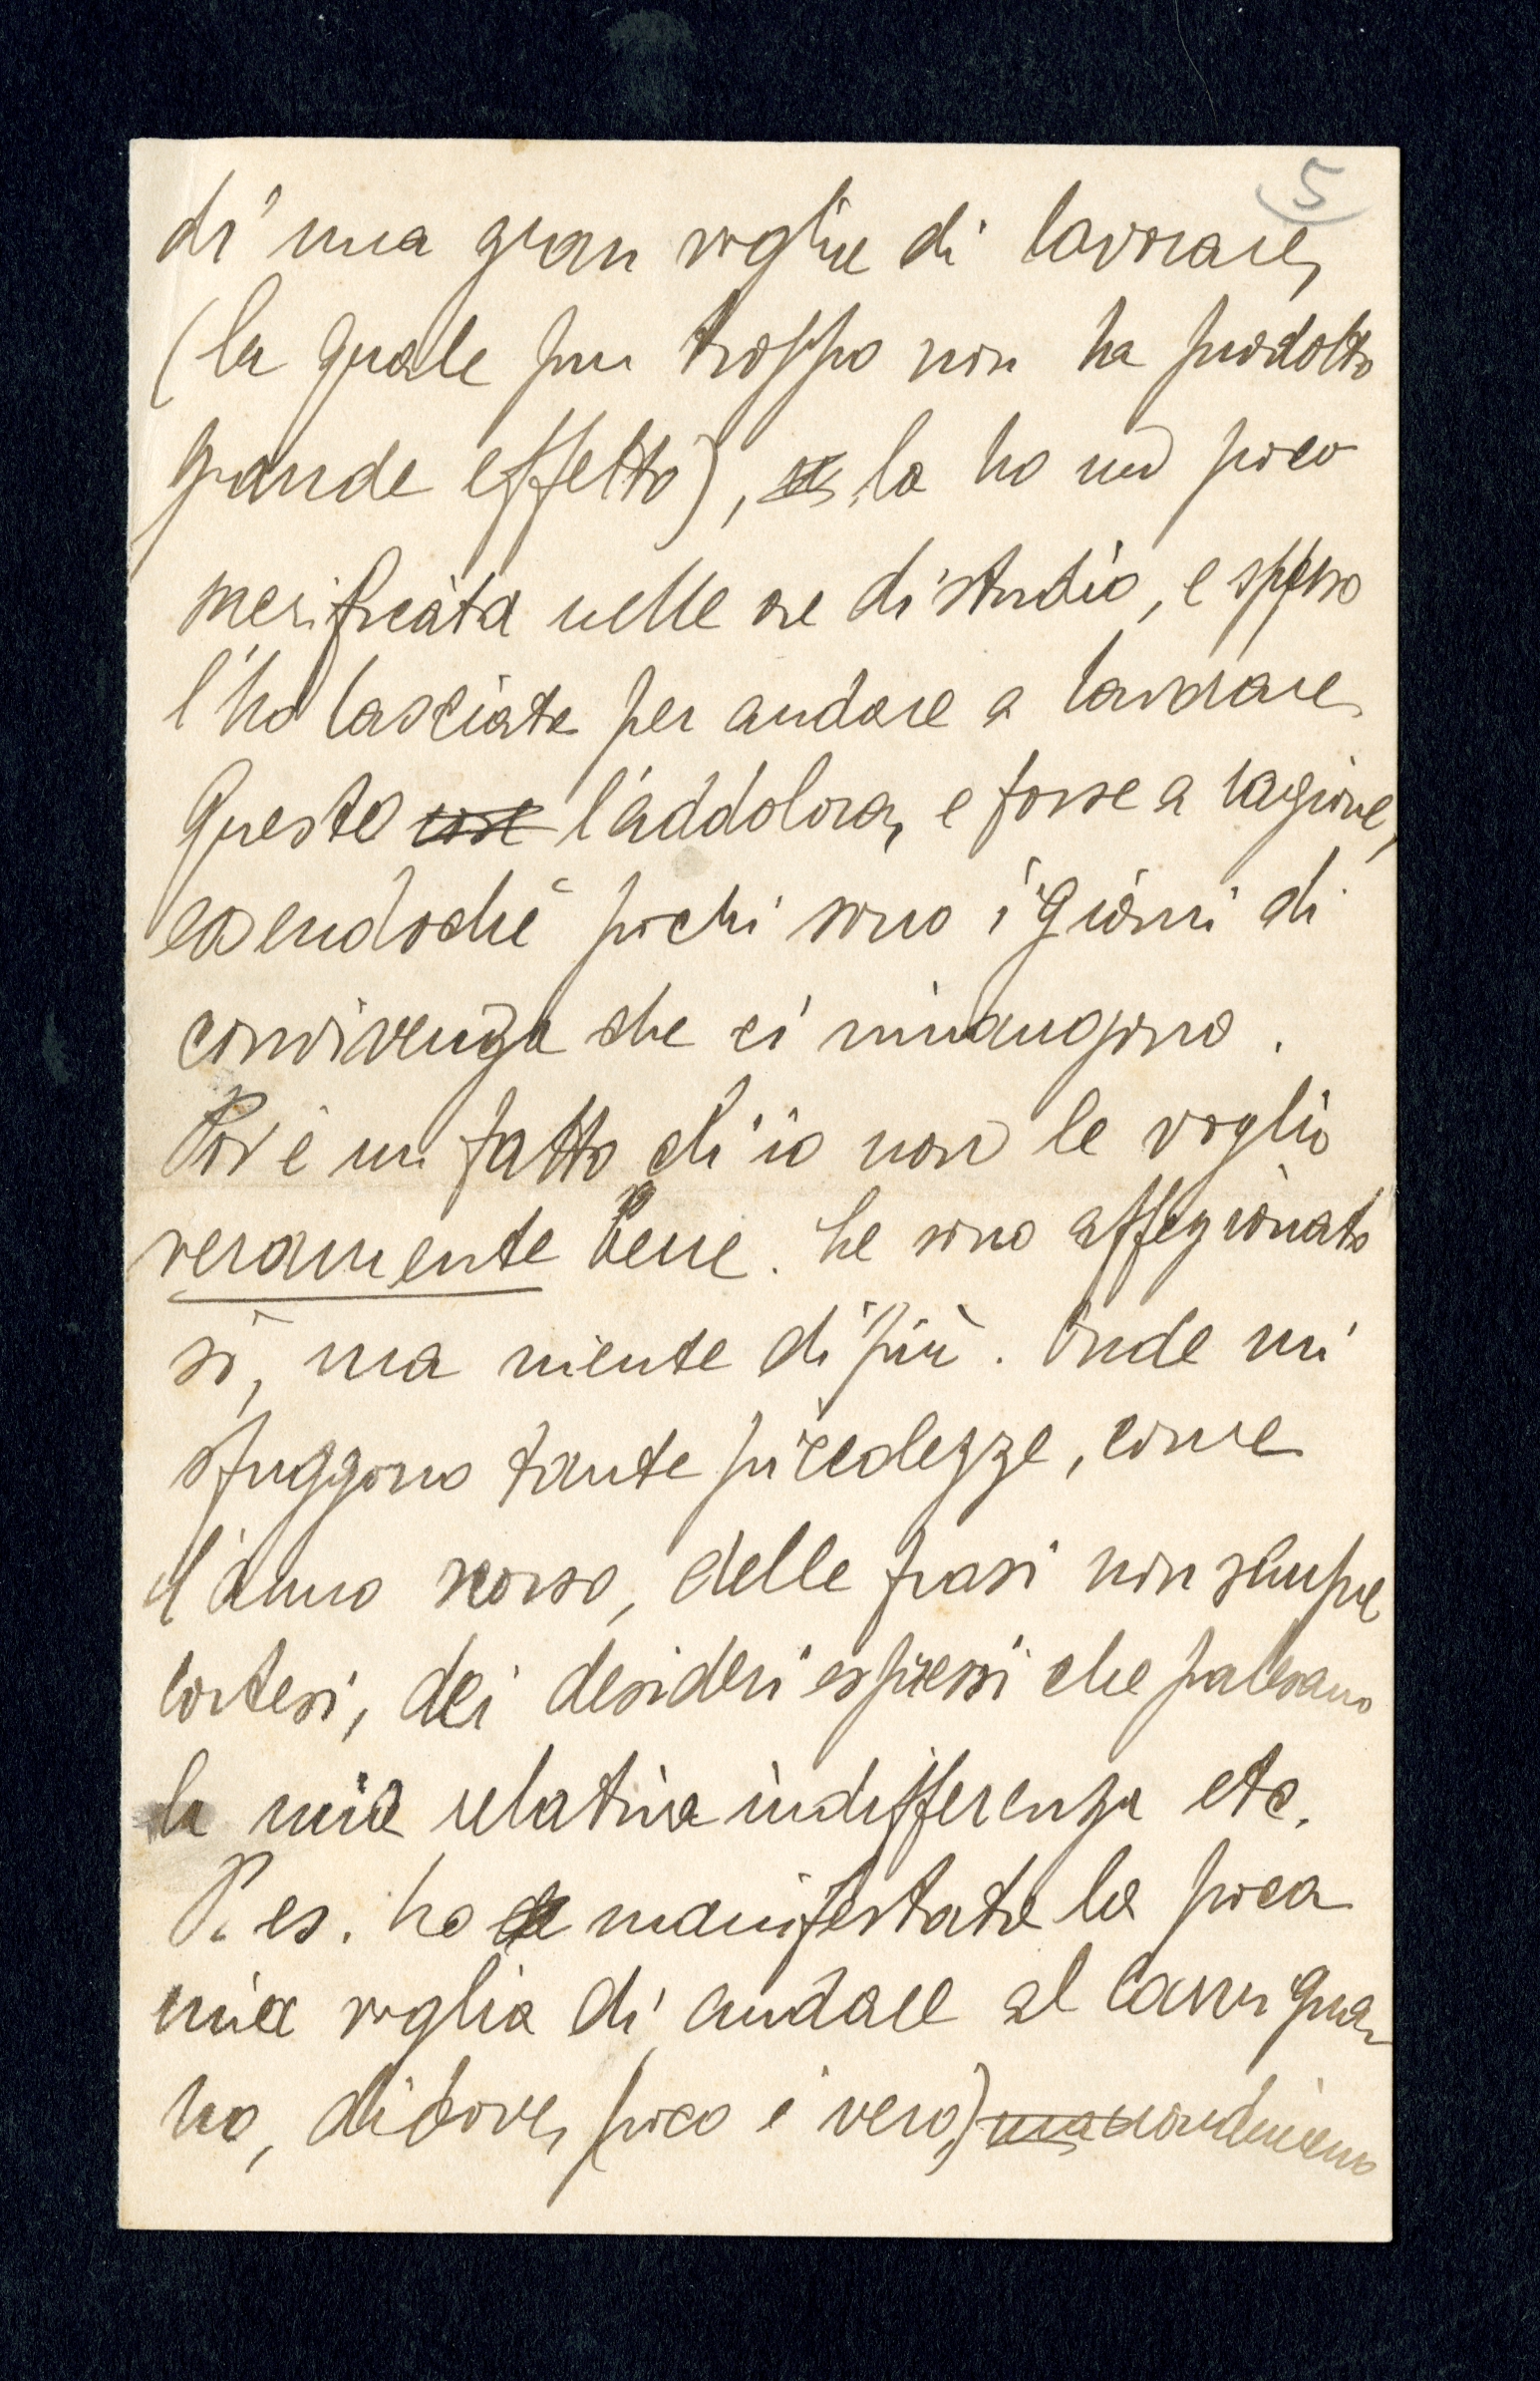 5
di una gran voglia di lavorare,
(la quale pur troppo non ha prodotto
grande effetto), la ho un poco
sacrificata nelle ore di studio, e spesso
l'ho lasciata per andare a lavorare.
Questo cose l'addolora, e forse a ragione,
essendoché pochi sono i giorni di
convivenza che ci rimangono.
Poi è un fatto ch'io non le voglio
veramente bene. Le sono affezionato
sì, ma niente di più. Onde mi
sfuggono tante piccolezze, come
l'anno scorso, delle frasi non sempre
cortesi, dei desideri espressi che palesano
la mia relativa indifferenza etc.
P. es. ho manifestata la poca
mia voglia di andare al Carrigna-
no, di dove, poco è vero, ma nondimeno